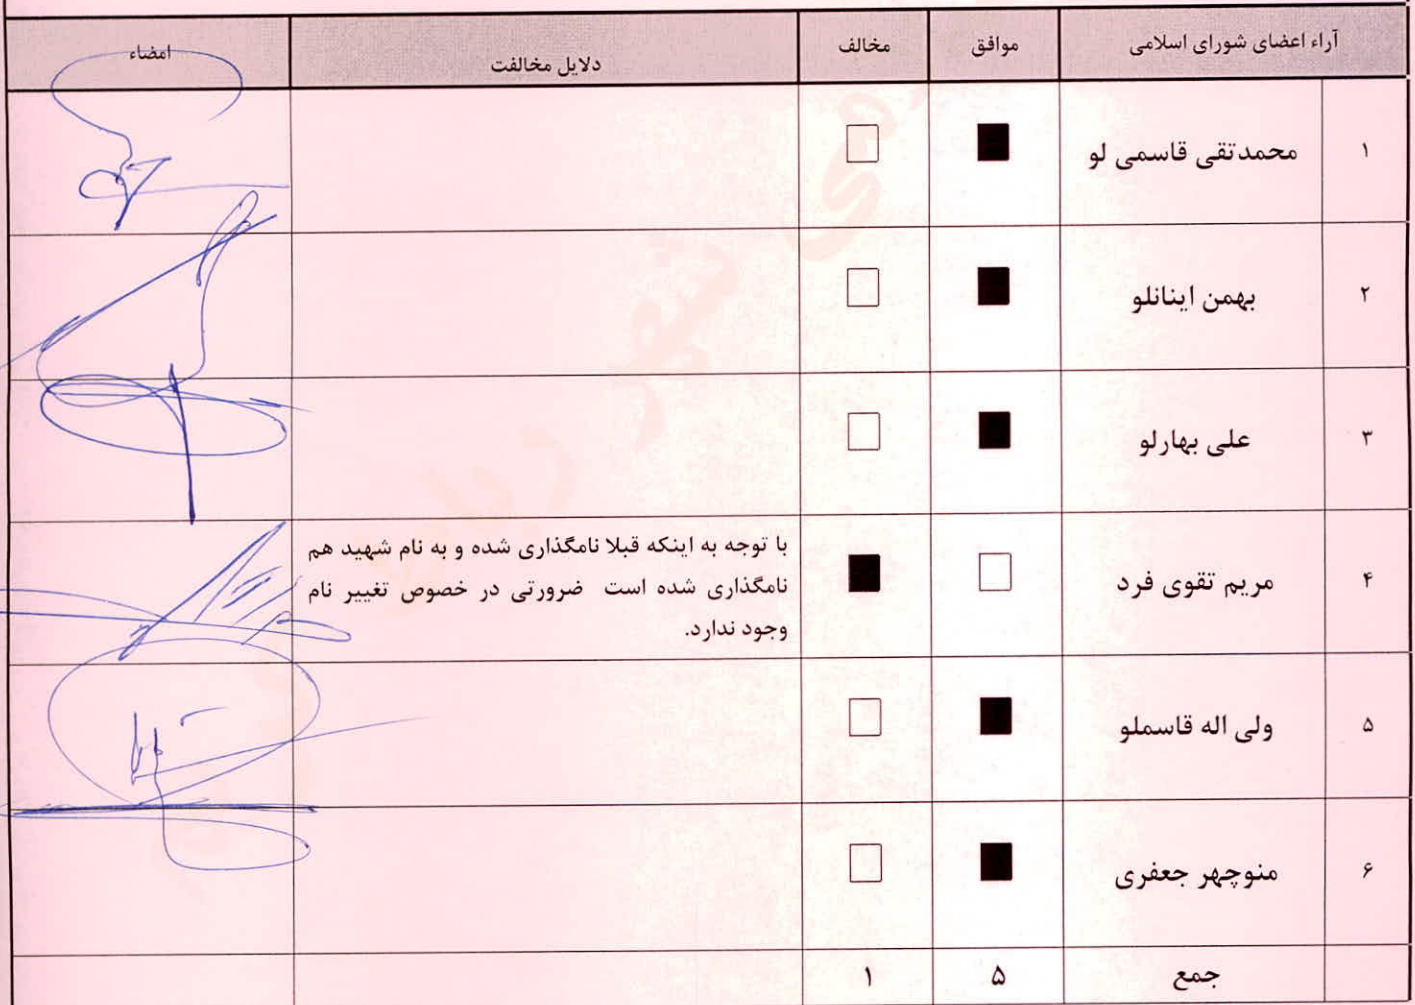 آراء اعضای شورای اسلامی موافق مخالف دلایل مخالفت امضاء
۱ محمدتقی قاسمی لو ■ □
۲ بهمن اینانلو ■ □
۳ علی بهارلو ■ □
۴ مریم تقوی فرد □ ■ با توجه به اینکه قبلا نامگذاری شده و به نام شهید هم
نامگذاری شده است ضرورتی در خصوص تغییر نام
وجود ندارد.
۵ ولی اله قاسملو ■ □
۶ منوچهر جعفری ■ □
جمع ۵ ۱